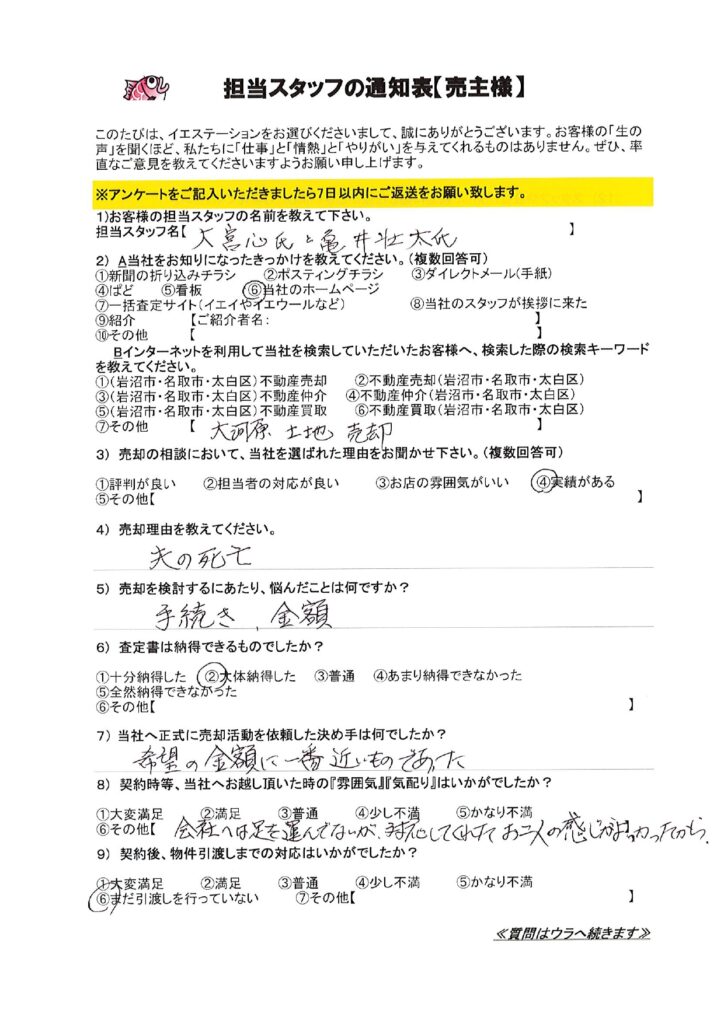 担当スタッフの通知表【売主様】
このたびは、イエステーションをお選びくださいまして、誠にありがとうございます。お客様の「生の
声」を聞くほど、私たちに「仕事」と「情熱」と「やりがい」を与えてくれるものはありません。ぜひ、率
直なご意見を教えてくださいますようお願い申し上げます。
※アンケートをご記入いただきましたら7日以内にご返送をお願い致します。
1)お客様の担当スタッフの名前を教えて下さい。
担当スタッフ名【 大宮心氏と亀井壮太氏 】
2) A当社をお知りになったきっかけを教えてください。(複数回答可)
①新聞の折り込みチラシ ②ポスティングチラシ ③ダイレクトメール(手紙)
④ぱど ⑤看板 ⑥当社のホームページ
⑦一括査定サイト(イエイやイエウールなど) ⑧当社のスタッフが挨拶に来た
⑨紹介 【ご紹介者名: 】
⑩その他 【 】
Bインターネットを利用して当社を検索していただいたお客様へ、検索した際の検索キーワード
を教えてください。
①(岩沼市・名取市・太白区)不動産売却 ②不動産売却(岩沼市・名取市・太白区)
③(岩沼市・名取市・太白区)不動産仲介 ④不動産仲介(岩沼市・名取市・太白区)
⑤(岩沼市・名取市・太白区)不動産買取 ⑥不動産買取(岩沼市・名取市・太白区)
⑦その他 【 大河原 土地 売却 】
3) 売却の相談において、当社を選ばれた理由をお聞かせ下さい。(複数回答可)
①評判が良い ②担当者の対応が良い ③お店の雰囲気がいい ④実績がある
⑤その他【 】
4) 売却理由を教えてください。
夫の死亡
5) 売却を検討するにあたり、悩んだことは何ですか?
手続き、金額
6) 査定書は納得できるものでしたか?
①十分納得した ②大体納得した ③普通 ④あまり納得できなかった
⑤全然納得できなかった
⑥その他【 】
7) 当社へ正式に売却活動を依頼した決め手は何でしたか?
希望の金額に一番近いものであった
8) 契約時等、当社へお越し頂いた時の『雰囲気』『気配り』はいかがでしたか?
①大変満足 ②満足 ③普通 ④少し不満 ⑤かなり不満
⑥その他【 会社へは足を運んでないが、対応してくれたお二人の感じがよかったから。
9) 契約後、物件引渡しまでの対応はいかがでしたか?
①大変満足 ②満足 ③普通 ④少し不満 ⑤かなり不満
⑥まだ引渡しを行っていない ⑦その他【 】
≪質問はウラへ続きます≫